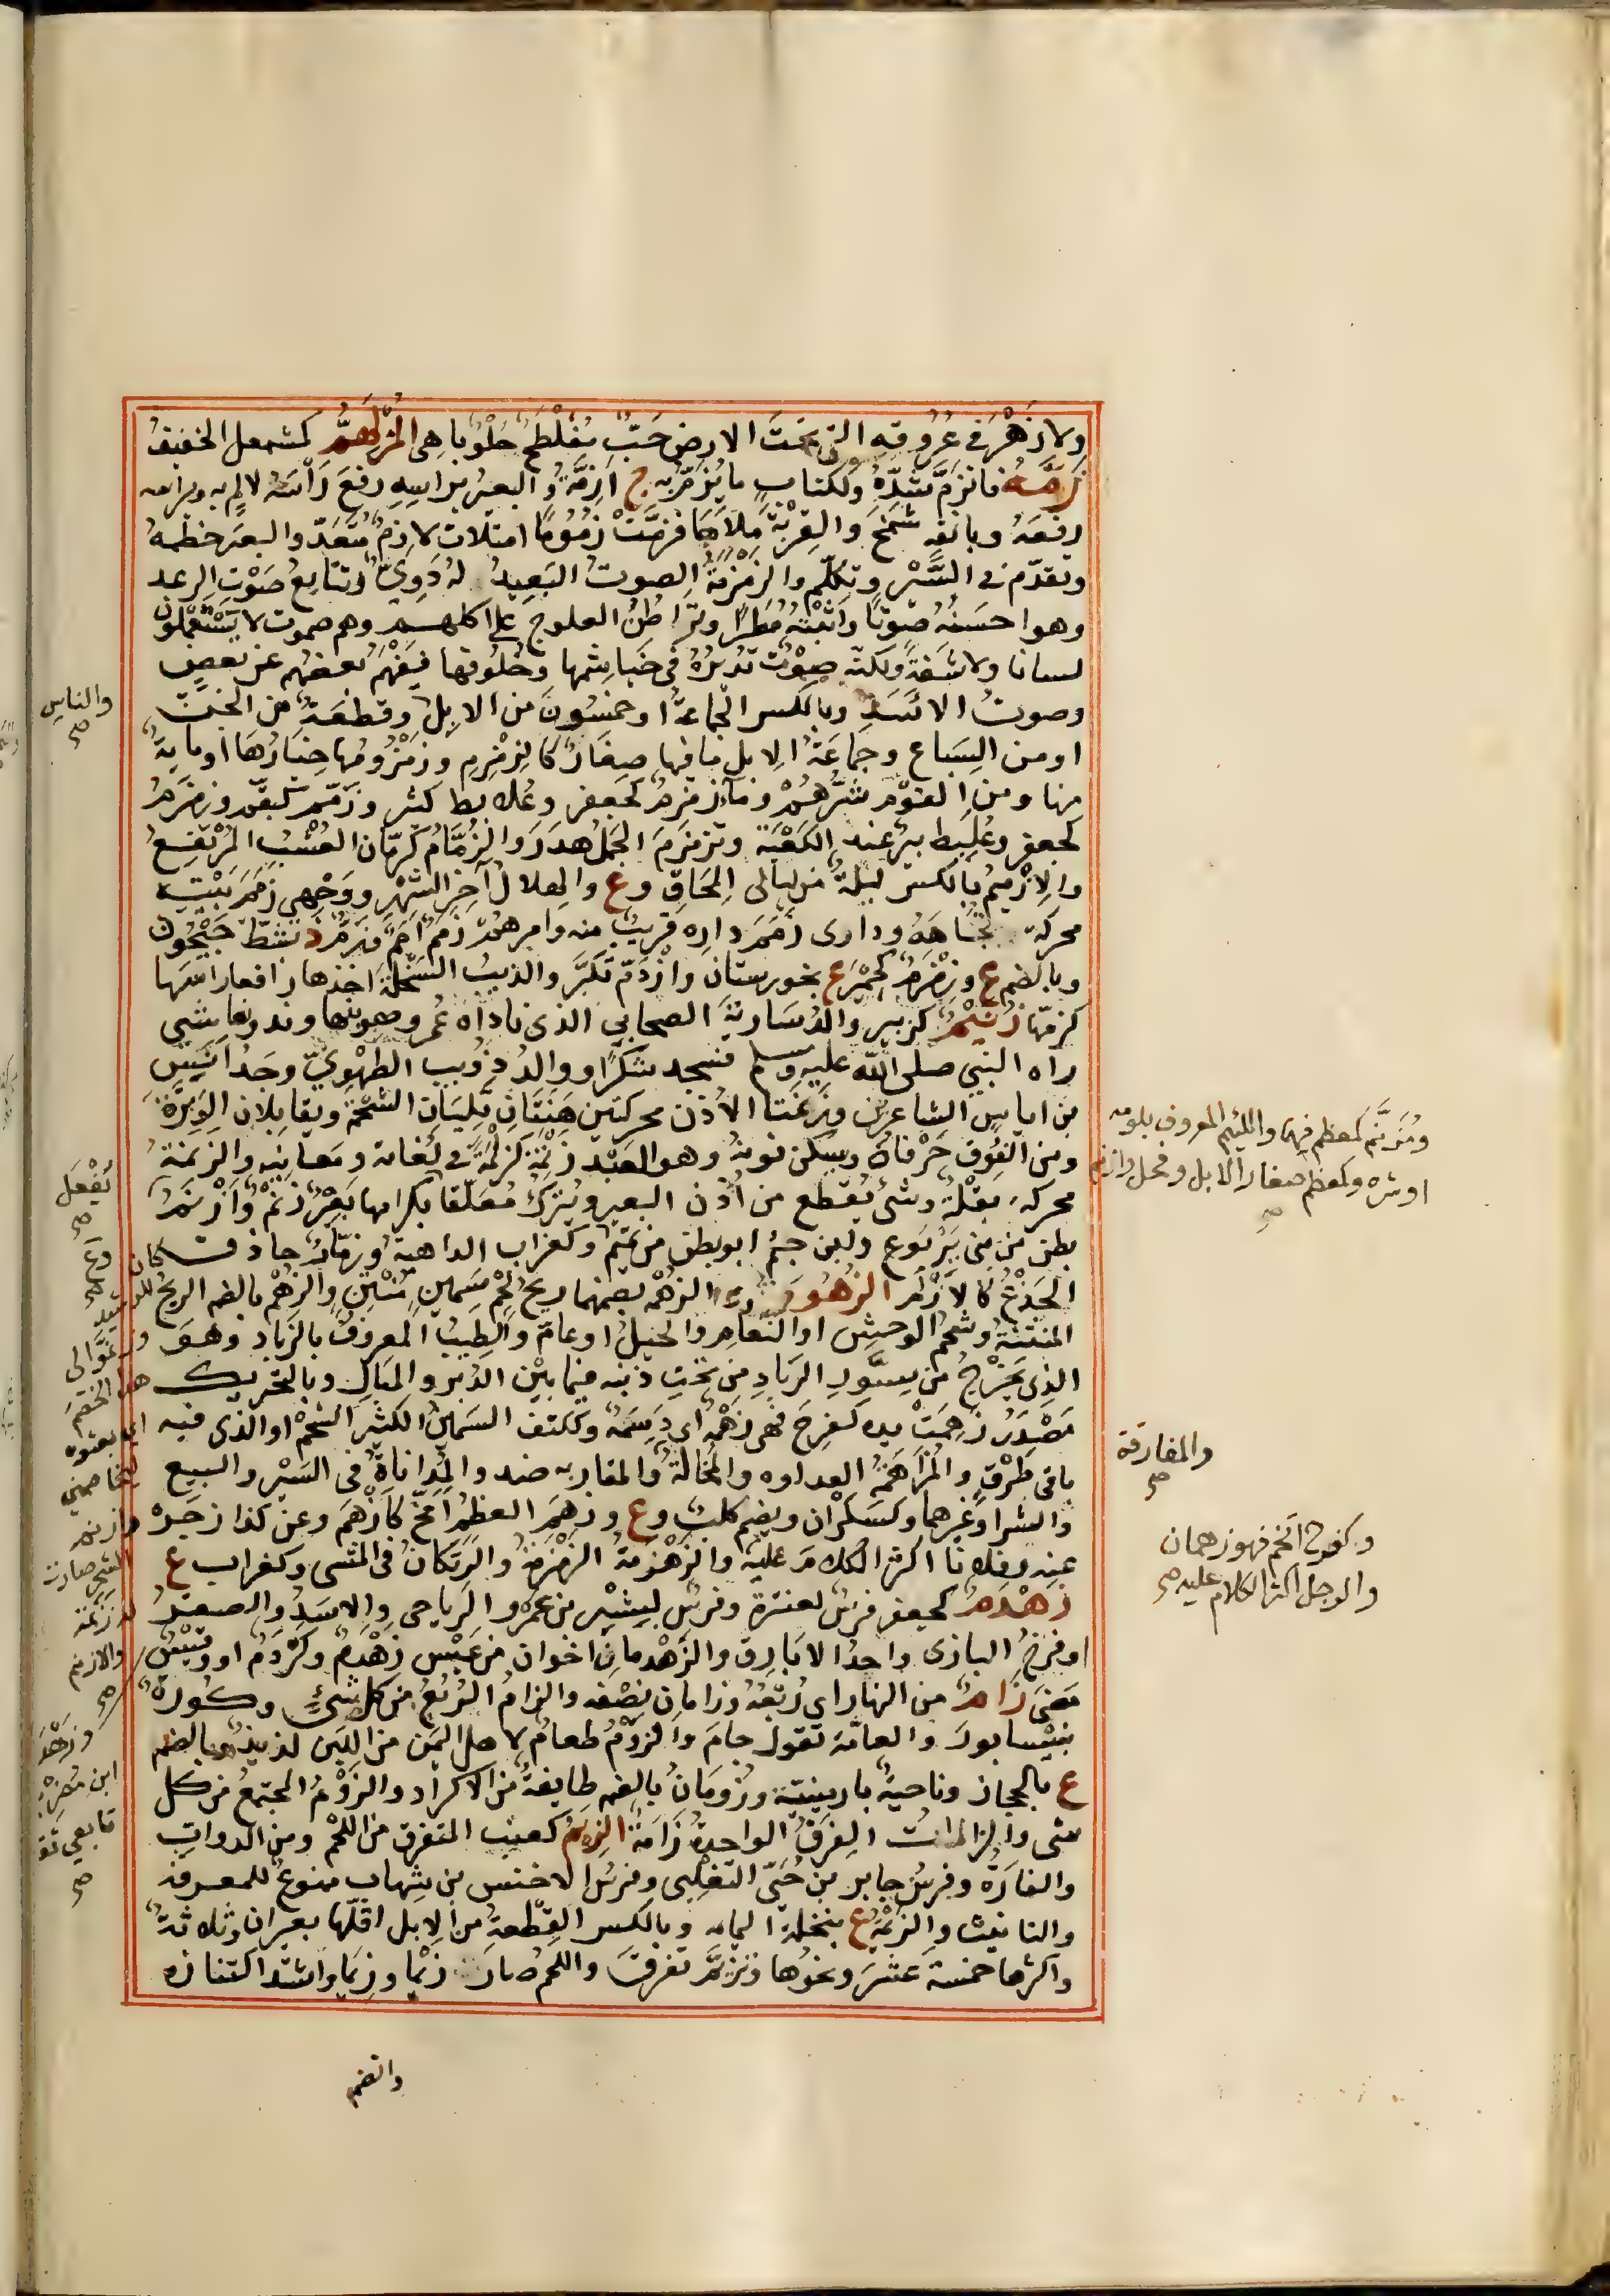 ولا زَهْرَ في عُرُوقِهِ التي تحتَ الارض حَبٌّ مُفَلْطَحٌ حُلْوٌ باهى المُزْلَهِمُّ كمشمعل الخفيفُ
زَمَّهُ فانزَمَّ شَدَّهُ وككتاب ما يُزَمُّ به ج اَزِمَّةٌ والبعيرُ براسِهِ رفَعَ رَأسَهُ لالمٍ به وبراسه
رفعَهُ وبانفِهِ شَمَخَ والقِرْبَةَ مَلأَها فزمَّتْ زُمُومًا امتلات لازمٌ مُتَعَدٍّ والبعيرَ خطمهُ
وتقدّم في السَّيْرِ وتكلّم والزمزمَةُ الصوتُ البَعِيدُ له دَوِيٌّ وتتابعُ صَوْتِ الرعد
وهو احسَنُه صوتًا واثبتُهُ مَطَرًا وتَراطُنُ العلوج على اكلهم وهم صموت لا يَسْتَعْمِلون
لسانا ولا شَفَةً ولكنّه صَوْتٌ تُديرُهُ في خَياشِيمها وحُلُوقها فيَفْهَمُ بعضُهم عن بعض
وصوتُ الاَسَدِ وبالكسر الجَماعَةُ او خمسُونَ من الابِلِ وقطعَةٌ من الجنّ
او من السِباع وجماعَةُ الابل ما فيها صِغَارٌ كالزِمْزِيمِ وزُمْزُومُها خيارُها او مايةٌ
منها ومن القوْمِ شرُّهُمْ وماءٌ زمزمٌ كجعفر وعُلابط كثير وزَمَّم كبقَّم وزمزمُ
كجعفر وعُلَبِط بيرٌ عند الكَعْبَة وتزمزَمَ الجَملُ هدرَ والزُمَّامُ كرمّان العُشْبُ المُرْتَفِعُ
والاِزْمِيمُ بالكسر ليلةٌ من ليالى المِحَاق وع والهلالُ آخر الشَهْرِ ووجهي زَمَمَ بَيْتِهِ
محركة تجَاهَهُ ودارى زَمَمَ داره قريبٌ منه وامرهُمْ زَمَمٌ اَمَمٌ وزَمُّ د بشطّ جَيْحُون
وبالضم ع وزمزمُ كحِمْيَر ع بخورستان وازْدَمّ تكبَّرَ والذيب السَخْلَةَ اخذها رافعا راسَها
كزمّها زُنَيْمٌ كزبير والدُ سَارِيَةَ الصحابي الذى ناداه عُمر وهو بنهاوند ونغاشىٌ
راه النبي صلى الله عليه وسلم فسجد شكرًا ووالدُ ذُويب الطهَوِيّ وجَدُّ انَسِ
بن ابى اياس الشاعرَين وزَنَمتا الاُذن محركتين هَنتَانِ تَلِيَانِ الشحمة وتقابِلان الوَتَرَة
ومن الفُوق حَرْفاهُ ويسكن نونهُ وهو العَبْد زَنْمَةً كزَلْمَةٍ في لُغاته ومَعانِيه والزنمَةُ
محركة بقلَةٌ وشئ يُقطع من اُذن البعير ويُتركُ مُعَلّقا بكرامها بَعيرٌ زَنِمٌ وَازْنَمُ
بطن من بنى يَرْبُوع ولبن جُشَم ابو بطن من تميم وكغراب الداهية وزمّارٌ حاذق كان للرشيد
الجَذَعُ كالاَزْلَم الزُهُومَةُ والزُهْمَةُ بضمهما ريحُ لحمٍ سَمِينٍ مُنْتِنٍ والزُهْمُ بالضم الريحُ
المنتنَةُ وشحمُ الوحش او النَعام والخَيل او عامٌ والطِيبُ المعروفُ بالزَباد وهو
الذى يَخرُجُ من سِنَّورِ الزَبادِ من تحتِ ذنبه فيما بين الدُبر والمَبال وبالتحريك
مَصْدَرُ زَهِمَتْ يده كفرِحَ فهى زَهِمَةٌ اى دَسِمَةٌ وككتف السَمينُ الكثيرُ الشحم او الذى فيه
باقى طِرْقٍ والمُزاهَمَةُ العداوه والمُخالَةُ والمقاربه ضد والمُداناةُ في السَيْر والبيع
والشرا وغيرهما وكسَكْرَان ويضم كلب وع وزهَمَ العظمُ اَمخّ كازْهَمَ وعن كذا زجرَهُ
عنه وفلانا اكثر الكلامَ عليه والزَهْزَمَةُ الزمزمَةُ والرَتَكانُ في المشى وكغراب ع
زَهْدَمٌ كجعفر فرسٌ لعنترة وفرسٌ لبِشْرِ بن عمرو الرياحي والاسَدُ والصقرُ
او فرخُ البازى واحدُ الابارِق والزهْدمانِ اخوان من عَبْسٍ زَهْدَمٌ وكَرْدَمٌ او وقَيْسٌ
مَضى زَامٌ من النهار اى رُبْعُهُ وزامان نِصْفه والزامُ الرُبْعُ من كل شئٍ وكُورةٌ
بنَيْسابورَ والعامّة تقولُ جامَ والزَوْمُ طعامٌ لاهل اليمَن من اللبَن لذيذٌ وبالضم
ع بالحجاز وناحيةٌ بارمينية وزُومَانُ بالضم طايفةٌ من الاكراد والزَوْمُ المجتمعُ من كل
شى والزاماتُ الفِرَقُ الواحدةُ زَامَةٌ الزِيَمُ كعنب المتفرق من اللحْم ومن الدوابّ
والغارَةُ وفرسُ جابر بن حُنَيّ التغلِبى وفرسُ الاخنس بن شِهاب ممنوعٌ للمعرفه
والتانيث والزيْمَةُ ع بنخلة اليمانيه وبالكسر القِطْعةُ من الابل اقلّها بعيران وثلاثةٌ
واكثرها خمسَةَ عَشَرَ ونحوُها وتزيَّمَ تفرقَ واللحمُ صار زِيَمًا وزيَما واشتدّ اكتنازه
وانضم
والناس صح
ومُزَنَّم كمعظم فيهما واللئيم المعروف بلومه
او شره وكمعظم صغار الابل وفحل وازنم صح
والمفارقة صح
وكفرح اتخم فهو زهمان
والرجل اكثر الكلام عليه صح
يُفْعَل صح
هذا الخصم
اى بعثوه
ليخاصمني
وازنم
الشجر صارت
له زنمة
والازنم
صح
وزَهْدَم
تابعي ثقة
صح